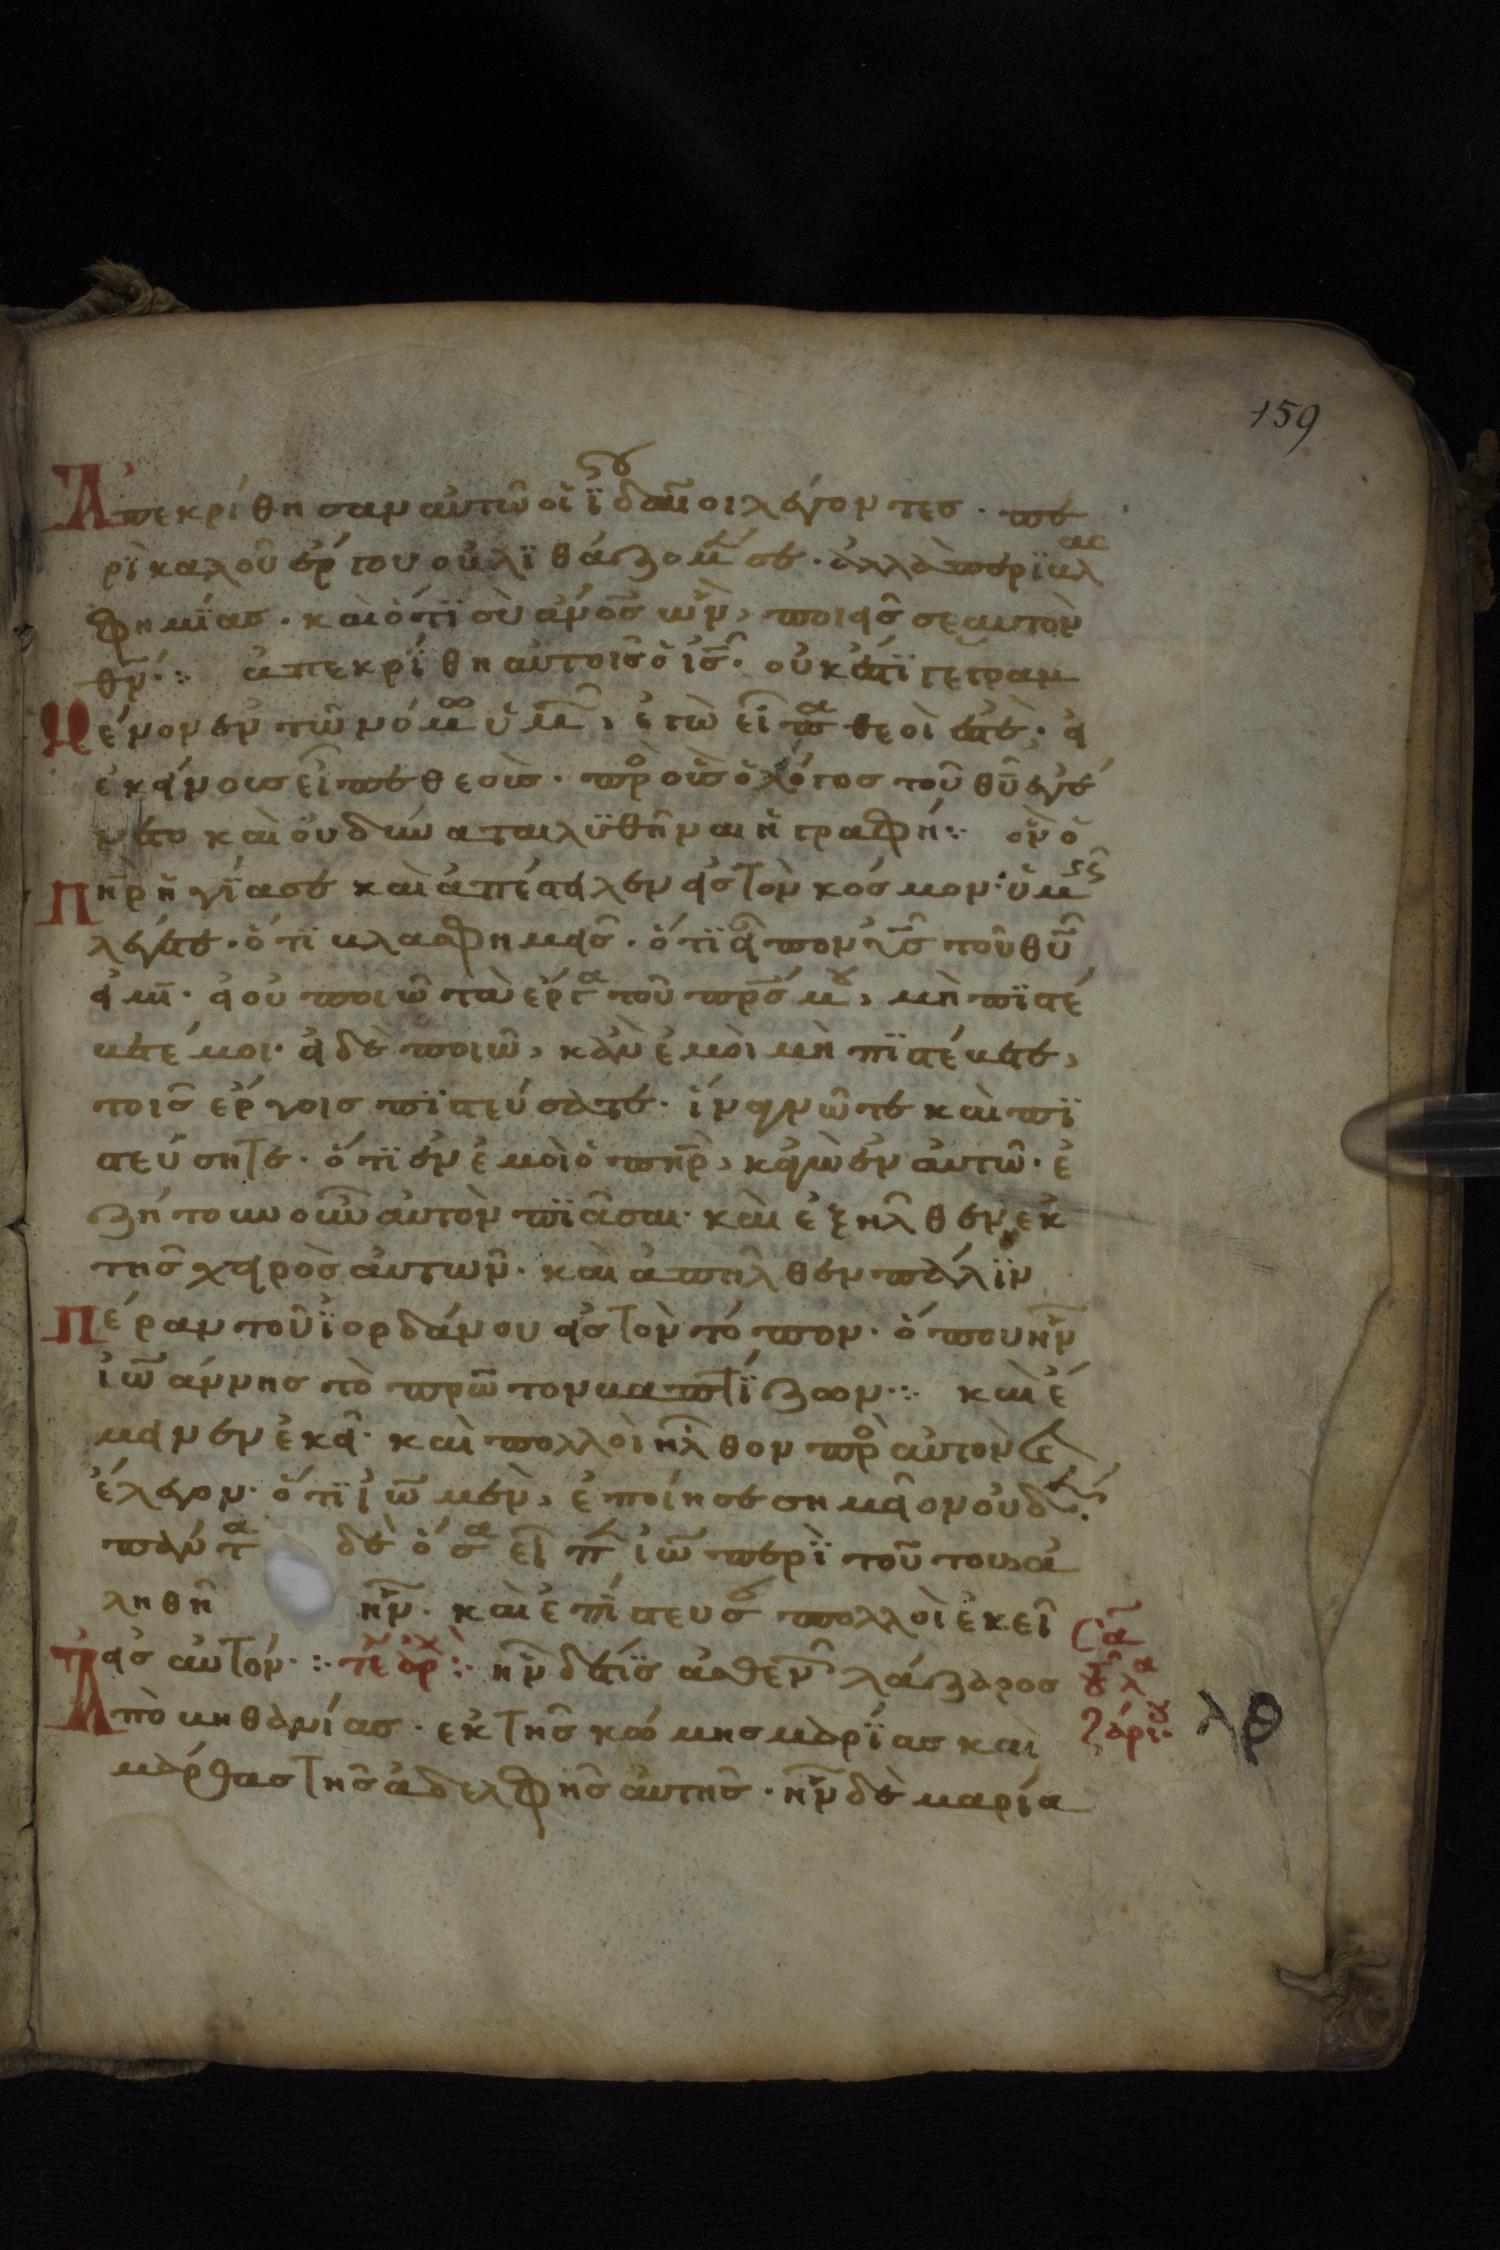 159
Ἀπεκρίθησαν αὐτῶ οἱ ϊουδαῖοι λέγοντες · πε
ρὶ καλοῦ ἔργου οὐ λϊθάζομέν σε · ἀλλὰ περὶ βλας
φημΐας · καὶ ὅτϊ σὺ ἄνος ὢν, ποιεῖς σεαυτὸν
θν· :· ἀπεκρίθη αὐτοῖς ὁ ις · οὐκ ἔστϊ γεγραμ
μένον ἐν τῶ νόμω ὑμῶν, ἐγὼ εἶπα θεοί ἐστε · εἰ
ἐκείνους εἶπε θεοὺς · πρὸς οὓς ὁ λόγος τοῦ θυ ἐγέ
νετο καὶ οὐ δύναται λϋθῆναι ἡ γραφή :· ὃν ὁ
πηρ ἡγΐασε καὶ ἀπέστειλεν εἰς τὸν κόσμον · ὑμεῖς
λέγετε · ὅτϊ βλασφημεῖς · ὅτϊ εἶπον υς τοῦ θυ
εἰμι · εἰ οὐ ποιῶ τὰ ἔργα τοῦ πρς μου, μὴ πϊστεύ
ετέ μοι · εἰ δὲ ποιῶ, κἂν ἐμοὶ μὴ πϊστεύετε,
τοῖς ἔργοις πϊστεύσατε · ἵνα γνῶτε καὶ πϊ
στεύσητε · ὅτϊ ἐν ἐμοὶ ὁ πηρ, κἀγὼ ἐν αὐτῶ · ἐ
ζήτουν οὖν αὐτὸν πϊᾶσαι · καὶ ἐξῆλθεν ἐκ
τῆς χειρὸς αὐτῶν · καὶ ἀπῆλθεν πάλϊν
πέραν τοῦ ϊορδάνου εἰς τὸν τόπον · ὅπου ἦν
ἰωάννης τὸ πρῶτον βαπτΐζων :· καὶ ἔ
μεινεν ἐκεῖ · καὶ πολλοὶ ἦλθον πρὸς αὐτὸν καὶ
ἔλεγον · ὅτϊ ἰω μὲν, ἐποίησε σημεῖον οὐδέν ·
πάντα δὲ ὅσα εἶπεν ἰω περὶ τούτου ἀ
ληθῆ ἦν · καὶ ἐπίστευσαν πολλοὶ ἐκεῖ
εἰς αὐτόν · :· ἦν δέ τϊς ἀσθενῶν λάζαρος
ἀπὸ βηθανίας · ἐκ τῆς κώμης μαρΐας καὶ
μάρθας τῆς ἀδελφῆς αὐτῆς · ἦν δὲ μαρία
λθ